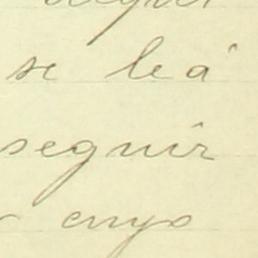 se leá
seguir
cuyo